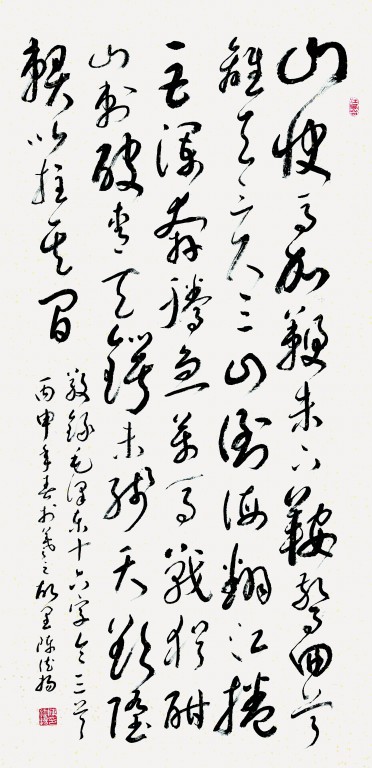 山快馬加鞭未下鞍驚回首
離天三尺三山倒海翻江捲
巨瀾奔騰急萬馬戰猶酣
山刺破青天鍔未殘天欲墮
賴以拄其間
敬錄毛澤東十六字令三首
丙申年春於羲之故里陳